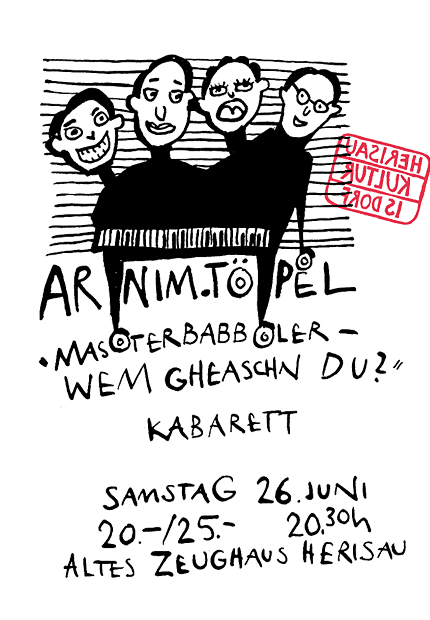 HERISAU
KULTUR
IS DORF
ARNIM.TÖPEL
"MASTERBABBLER –
WEM GHEASCHN DU?"
KABARETT
SAMSTAG 26.JUNI
20.–/25.– 20.30h
ALTES ZEUGHAUS HERISAU